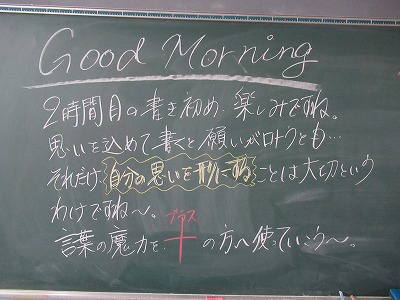 Good Morning
2時間目の書き初め、楽しみですね。
思いを込めて書くと願いが叶うとも…
それだけ、自分の思いを形にすることは大切という
わけですね〜。
プラス
言葉の魔力を、＋の方へ使っていこう〜。